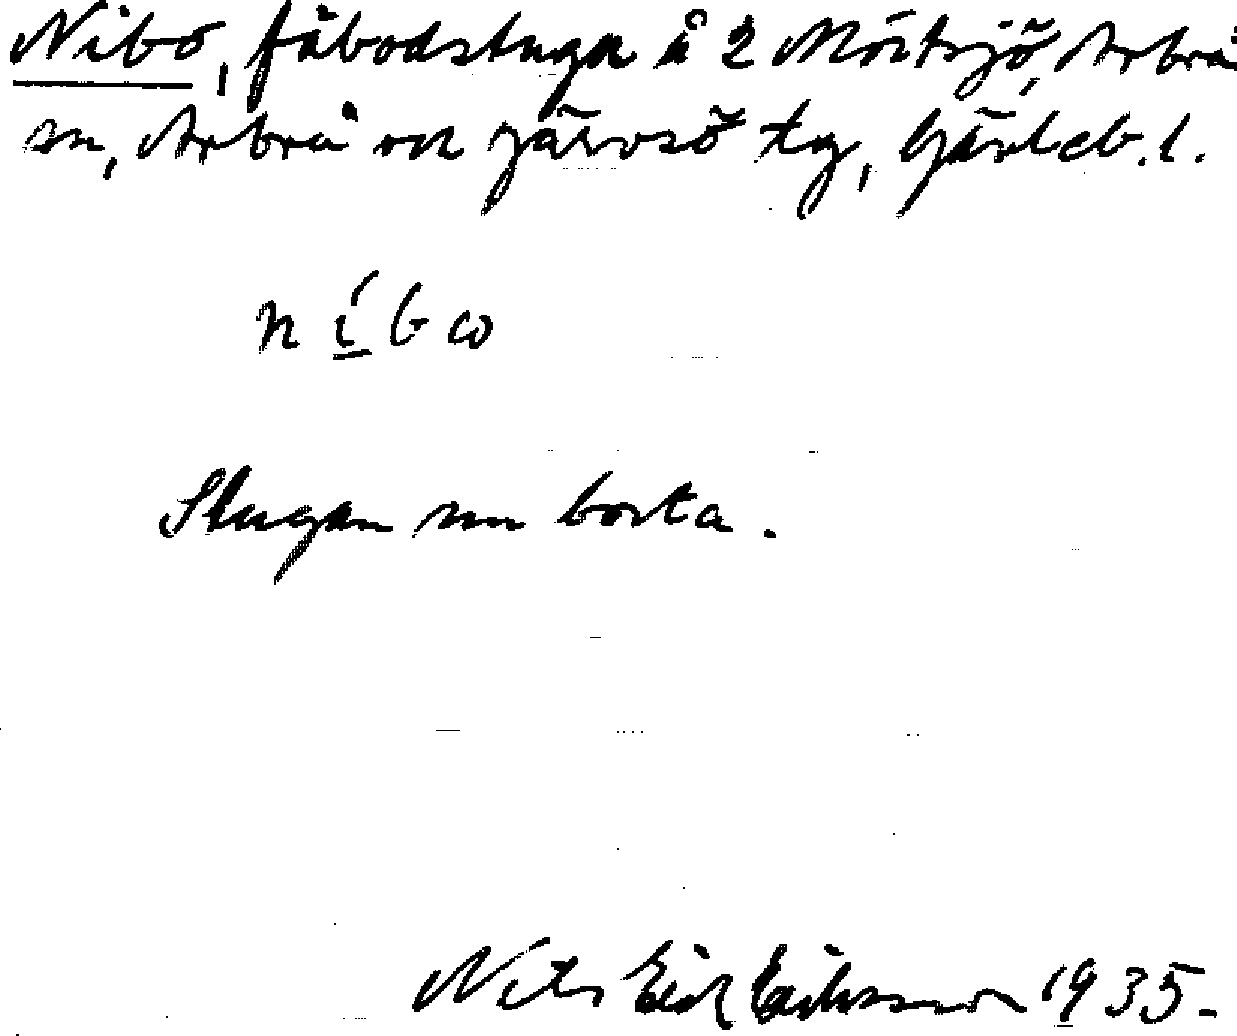 Nibo, fäbodstuga å 2 Mörtsjö, Arbrå
sn, Arbrå och Järvsö tg, Gävleb. l.
n í b ω
Stugan nu borta.
Nils Erik Eriksson 1935.